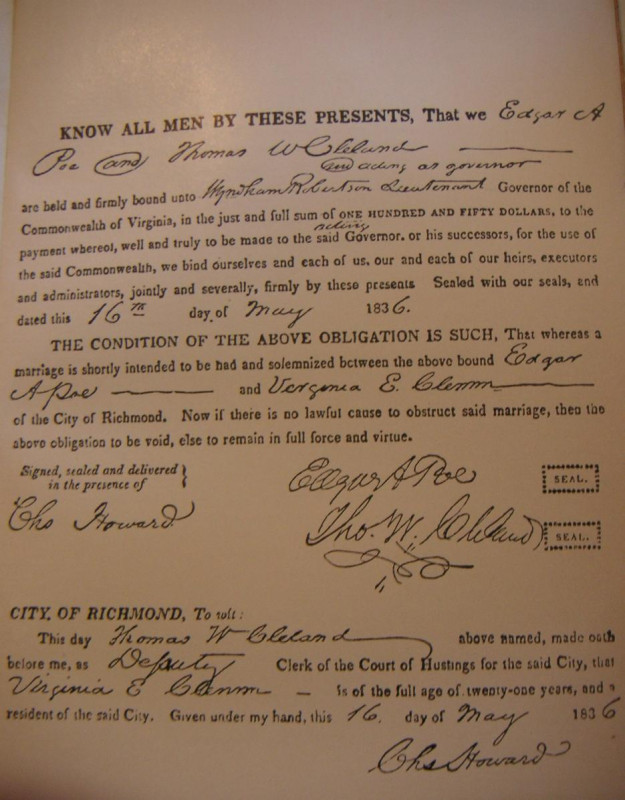 KNOW ALL MEN BY THESE PRESENTS, That we Edgar A
Poe and Thomas W Cleland
and acting as governor
are held and firmly bound unto Wyndham Robertson Lieutenant Governor of the
Commonwealth of Virginia, in the just and full sum of ONE HUNDRED AND FIFTY DOLLARS, to the
acting
payment whereof, well and truly to be made to the said Governor, or his successors, for the use of
the said Commonwealth, we bind ourselves and each of us, our and each of our heirs, executors
and administrators, jointly and severally, firmly by these presents Sealed with our seals, and
dated this 16th day of May 1836.
THE CONDITION OF THE ABOVE OBLIGATION IS SUCH, That whereas a
marriage is shortly intended to be had and solemnized between the above bound Edgar
A Poe and Virginia E. Clemm
of the City of Richmond. Now if there is no lawful cause to obstruct said marriage, then the
above obligation to be void, else to remain in full force and virtue.
Signed, sealed and delivered }
in the presence of
Edgar A Poe SEAL.
Chs Howard
Tho. W. Cleland SEAL.
CITY OF RICHMOND, To wit:
This day Thomas W Cleland above named, made oath
before me, as Deputy Clerk of the Court of Hustings for the said City, that
Virginia E Clemm is of the full age of twenty-one years, and a
resident of the said City. Given under my hand, this 16. day of May 1836
Chs Howard